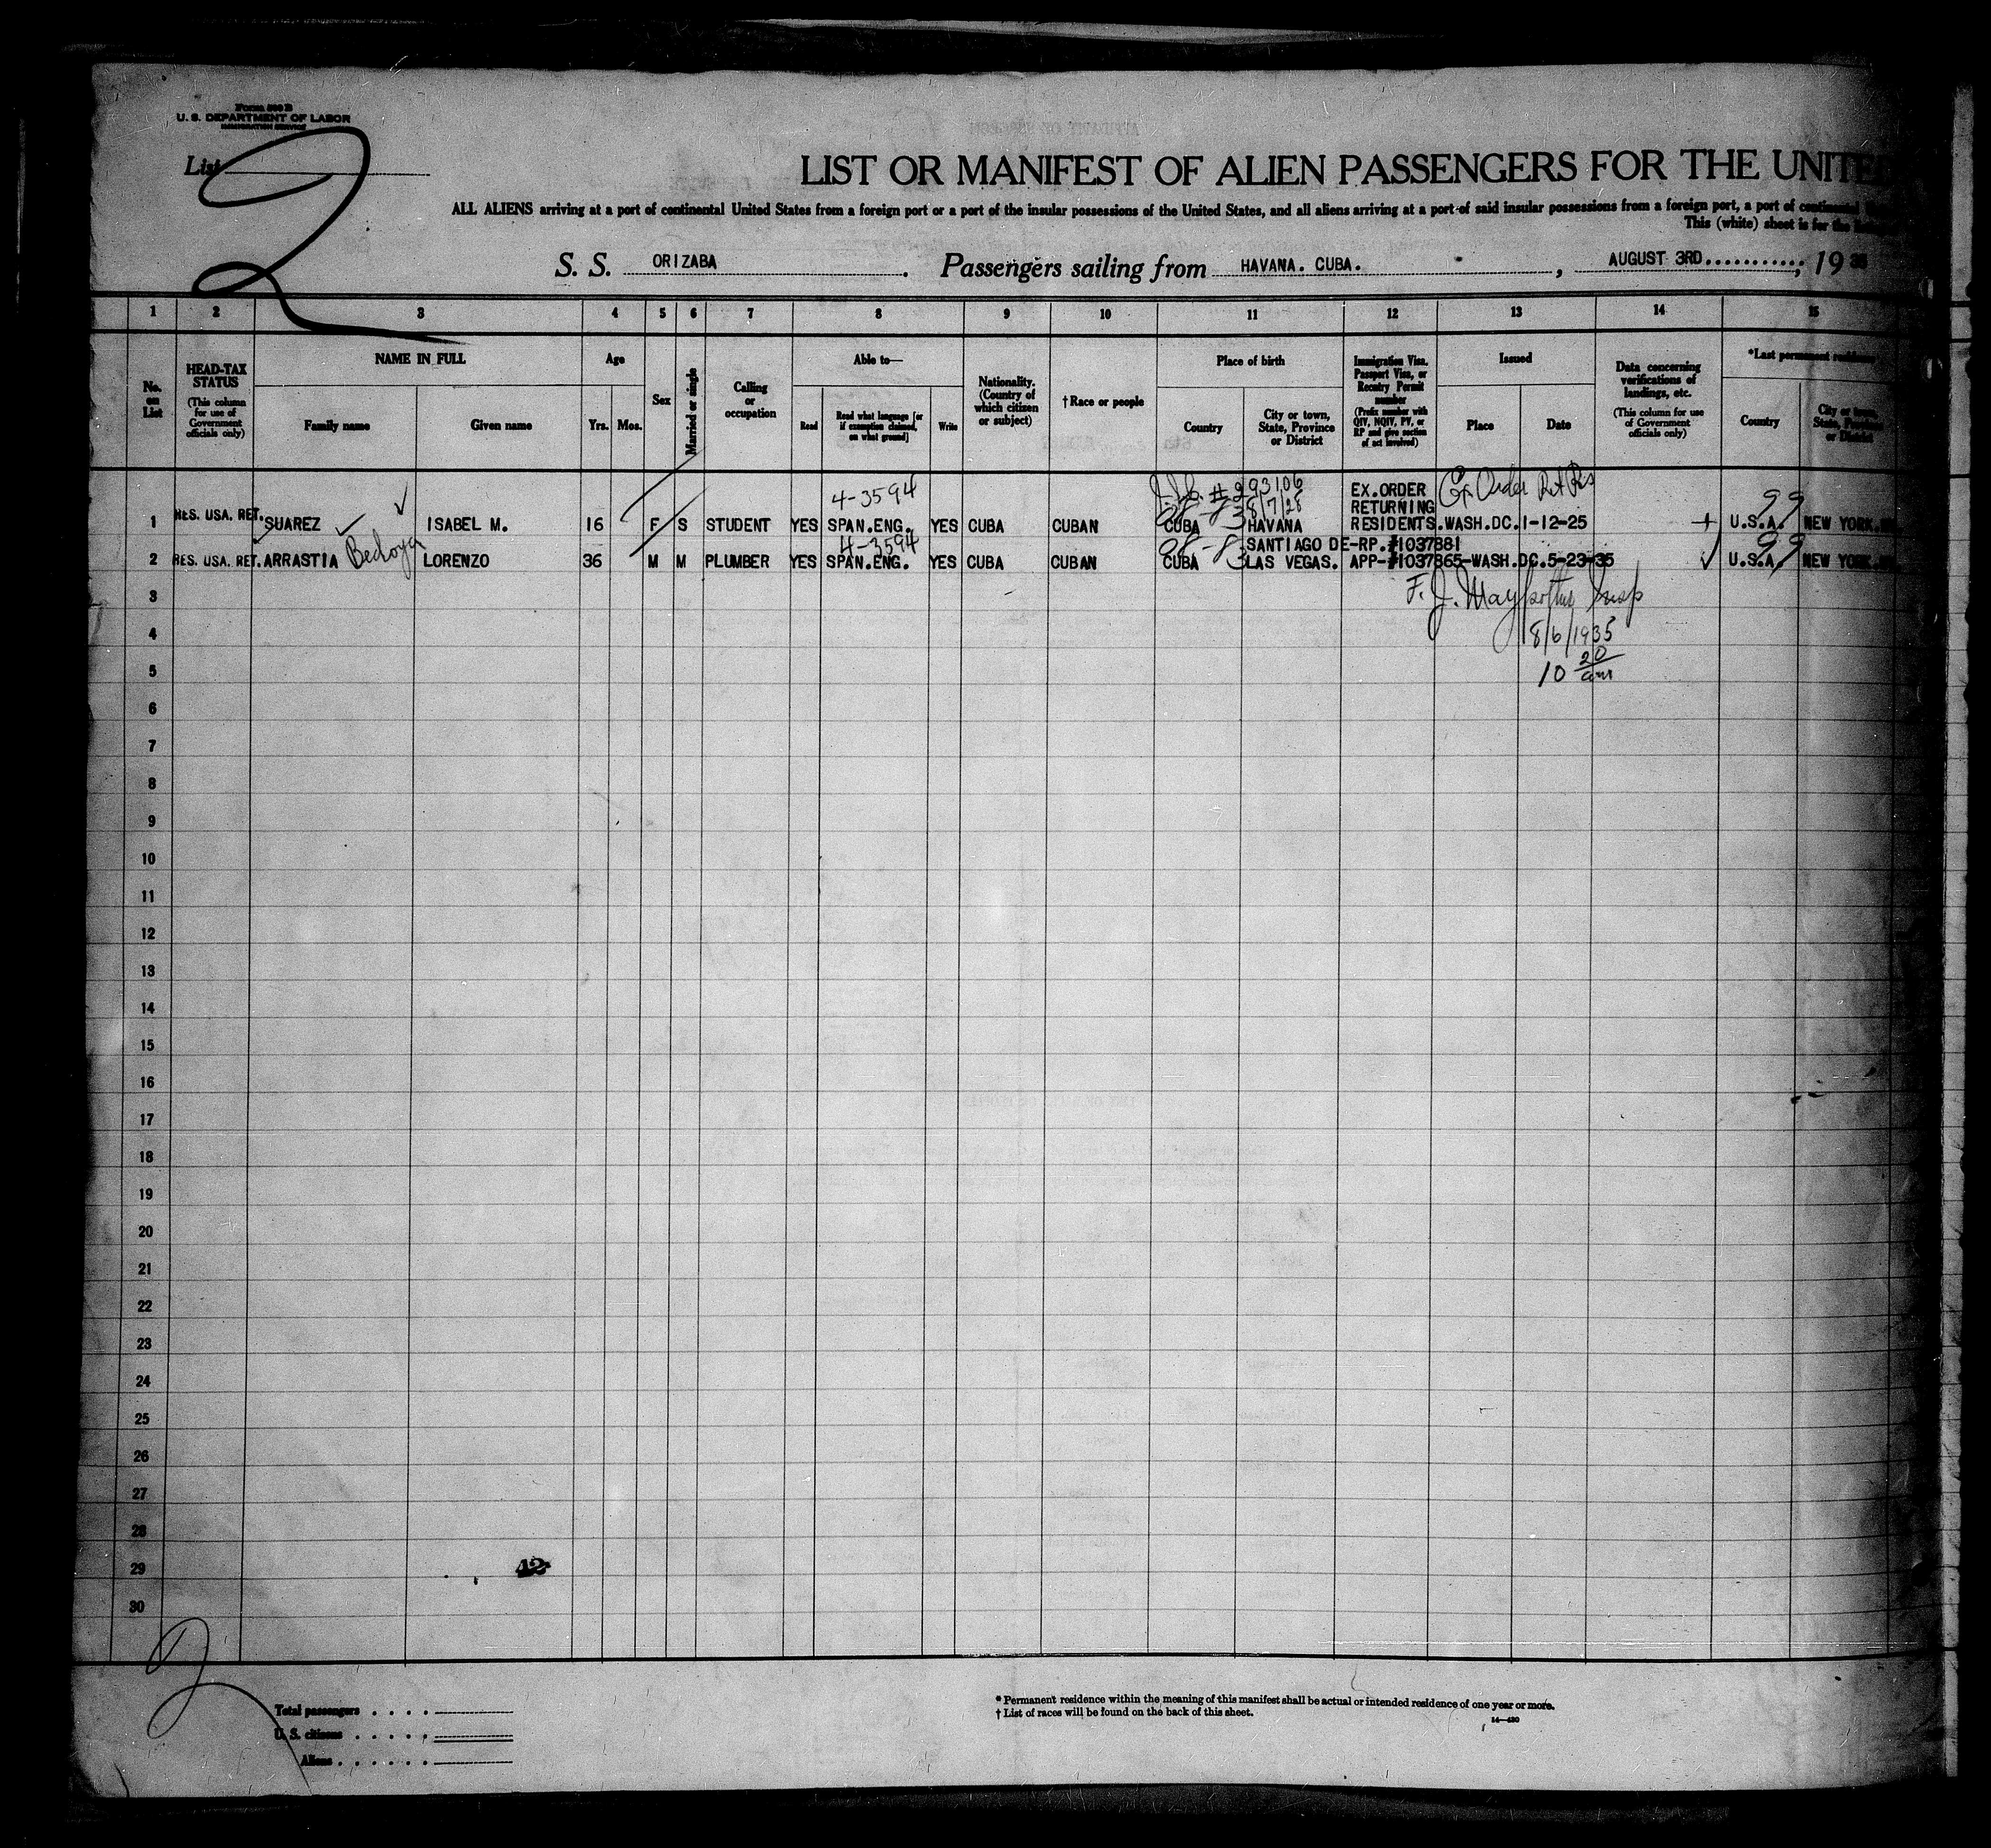 Form 500 B
U. S. DEPARTMENT OF LABOR
IMMIGRATION SERVICE
List 2
LIST OR MANIFEST OF ALIEN PASSENGERS FOR THE UNITE
ALL ALIENS arriving at a port of continental United States from a foreign port or a port of the insular possessions of the United States, and all aliens arriving at a port of said insular possessions from a foreign port, a port of continental
This (white) sheet is for the
S. S. ORIZABA. Passengers sailing from HAVANA. CUBA. , AUGUST 3RD...........; 19
1 2 3 4 5 6 7 8 9 10 11 12 13 14 15
No. on List
HEAD-TAX STATUS (This column for use of Government officials only)
NAME IN FULL
Family name Given name
Age
Yrs. Mos.
Sex
Married or single
Calling or occupation
Able to—
Read Read what language [or if exemption claimed, on what ground] Write
Nationality. (Country of which citizen or subject)
† Race or people
Place of birth
Country City or town, State, Province or District
Immigration Visa, Passport Visa, or Reentry Permit number (Prefix number with QIV, NQIV, PV, or RP and give section of act involved)
Issued
Place Date
Data concerning verifications of landings, etc. (This column for use of Government officials only)
*Last permanent residence
Country City or town, State, Province or District
4-3594 #293106 EX.ORDER Ex Order Ret Res
8/7/28 RETURNING 99
1 RES. USA. RET. SUAREZ ISABEL M. 16 F S STUDENT YES SPAN.ENG. YES CUBA CUBAN CUBA HAVANA RESIDENTS.WASH.DC.1-12-25 + U.S.A. NEW YORK.
4-3594 SANTIAGO DE-RP.#1037881 99
2 RES. USA. RET. ARRASTIA Bedoya LORENZO 36 M M PLUMBER YES SPAN.ENG. YES CUBA CUBAN CUBA LAS VEGAS. APP-#1037865-WASH.DC.5-23-35 U.S.A. NEW YORK
3 F. J. Insp
4 8/6/1935
5 10 20 am
6
7
8
9
10
11
12
13
14
15
16
17
18
19
20
21
22
23
24
25
26
27
28
29 42
30
Total passengers . . . .
U. S. citizens . . . . .
Aliens . . . . . .
* Permanent residence within the meaning of this manifest shall be actual or intended residence of one year or more.
† List of races will be found on the back of this sheet.
14—430